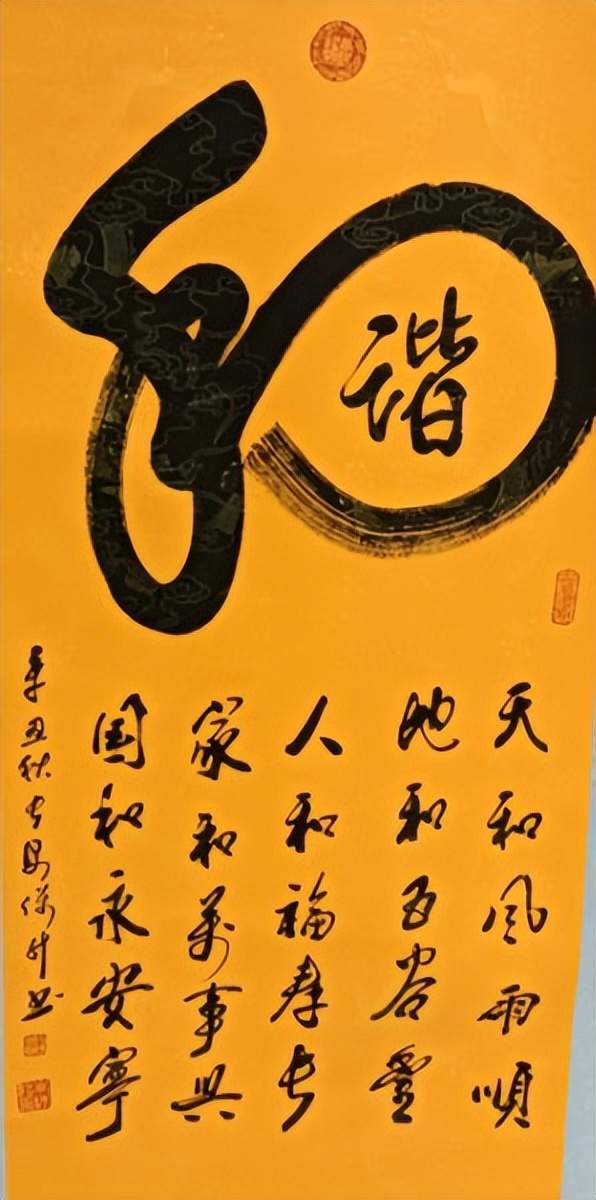 和
谐
天和风雨順
地和五谷豊
人和福寿长
家和万事兴
国和永安寧
辛丑秋 书